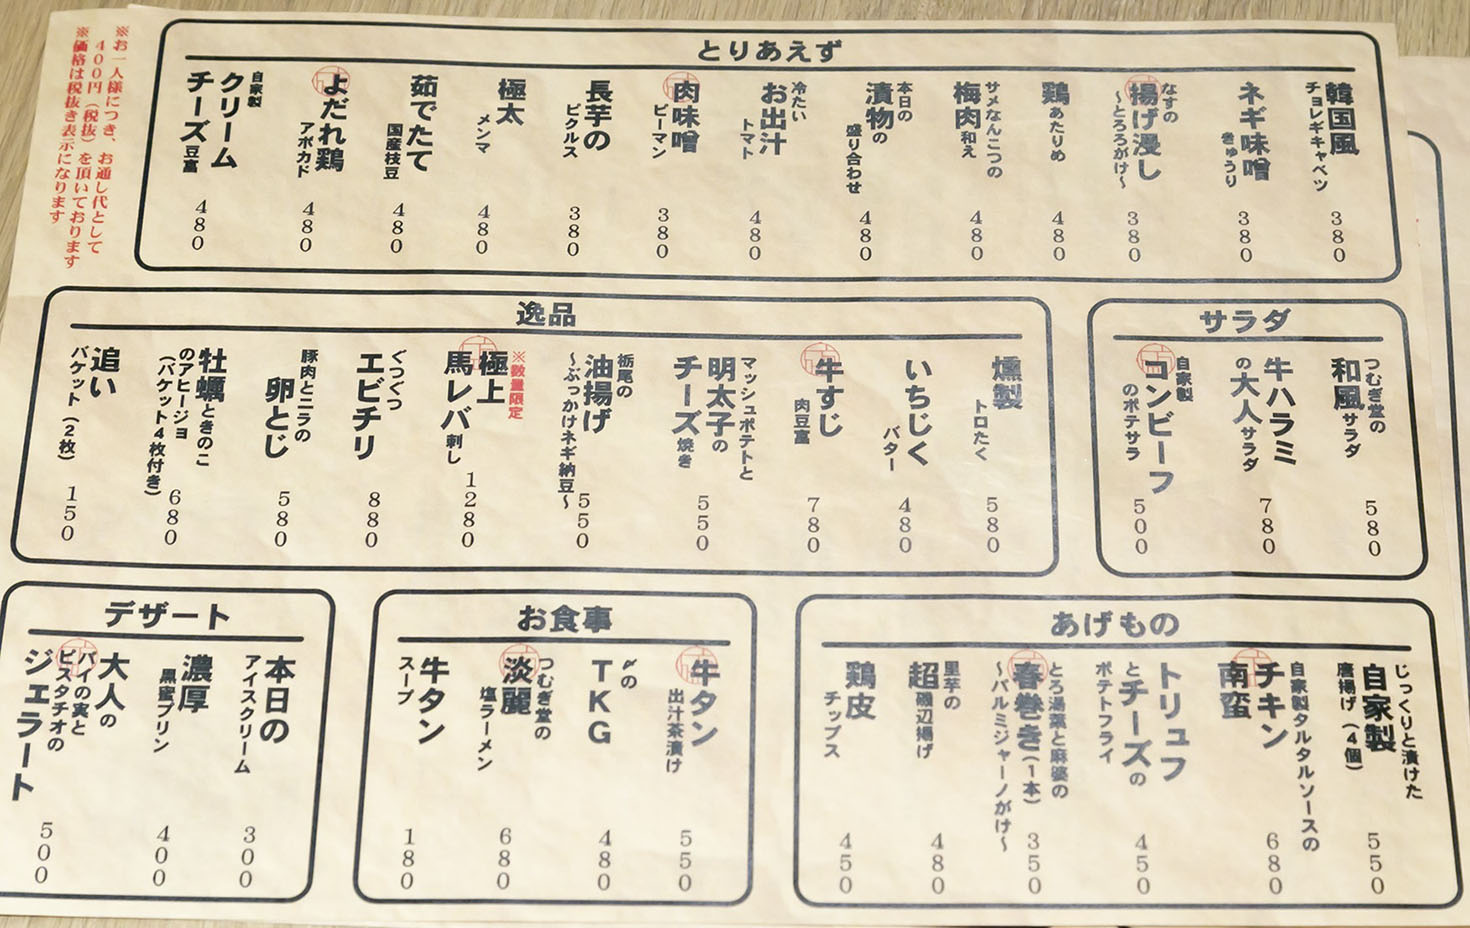 とりあえず
韓国風
チョレギキャベツ
380
ネギ味噌
きゅうり
380
なすの
揚げ浸し
〜とろろがけ〜
380
鶏
あたりめ
480
サメなんこつの
梅肉和え
480
本日の
漬物の
盛り合わせ
480
冷たい
お出汁
トマト
480
肉味噌
ピーマン
380
長芋の
ピクルス
380
極太
メンマ
480
茹でたて
国産枝豆
480
よだれ鶏
アボカド
480
自家製
クリーム
チーズ豆富
480
※お一人様につき、お通し代として
400円(税抜)を頂いております
※価格は税抜き表示になります
サラダ
つむぎ堂の
和風サラダ
580
牛ハラミ
の大人サラダ
780
自家製
コンビーフ
のポテサラ
500
逸品
燻製
トロたく
580
いちじく
バター
480
牛すじ
肉豆富
780
マッシュポテトと
明太子の
チーズ焼き
550
栃尾の
油揚げ
〜ぶっかけネギ納豆〜
550
※数量限定
極上
馬レバ刺し
1280
ぐつぐつ
エビチリ
880
豚肉とニラの
卵とじ
580
牡蠣ときのこ
のアヒージョ
(バケット4枚付き)
680
追い
バケット(2枚)
150
あげもの
じっくりと漬けた
自家製
唐揚げ(4個)
550
自家製タルタルソースの
チキン
南蛮
680
トリュフ
とチーズの
ポテトフライ
450
とろ湯葉と麻婆の
春巻き(1本)
〜パルミジャーノがけ〜
350
里芋の
超磯辺揚げ
480
鶏皮
チップス
450
お食事
牛タン
出汁茶漬け
550
〆の
TKG
480
つむぎ堂の
淡麗
塩ラーメン
680
牛タン
スープ
180
デザート
本日の
アイスクリーム
300
濃厚
黒蜜プリン
400
大人の
パイの実と
ピスタチオの
ジェラート
500